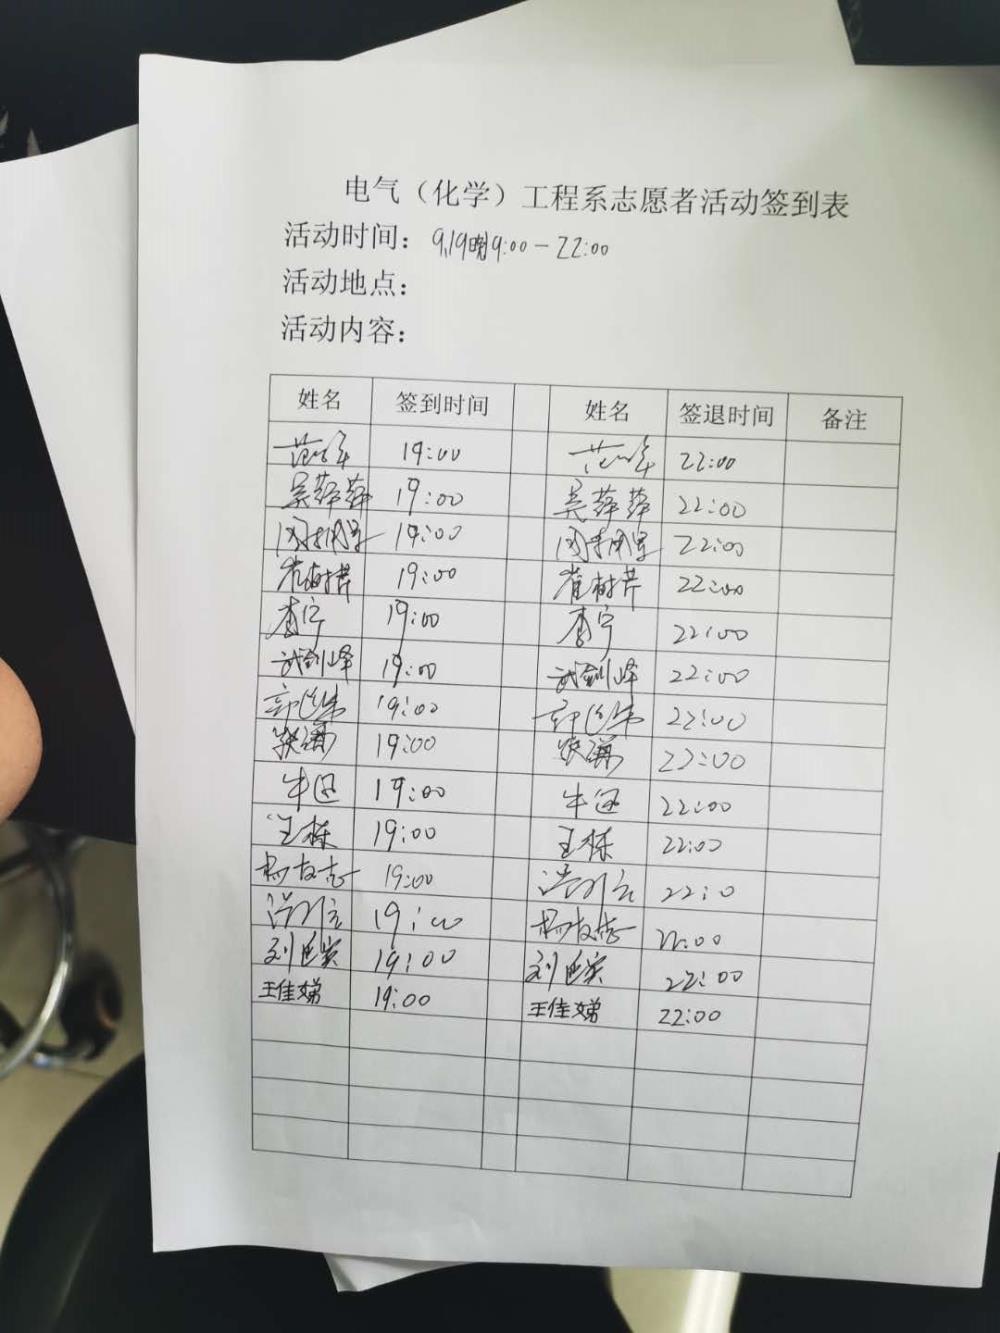 电气（化学）工程系志愿者活动签到表
活动时间：9.19晚19:00-22:00
活动地点：
活动内容：
姓名 签到时间 姓名 签退时间 备注
19:00 22:00
吴萍萍 19:00 吴萍萍 22:00
19:00 22:00
崔树芹 19:00 崔树芹 22:00
李宁 19:00 李宁 22:00
武剑峰 19:00 武剑峰 22:00
19:00 22:00
19:00 22:00
牛迅 19:00 牛迅 22:00
王栋 19:00 王栋 22:00
杨友志 19:00 22:0
19:00 杨友志 22:00
刘 19:00 刘 22:00
王佳娣 19:00 王佳娣 22:00